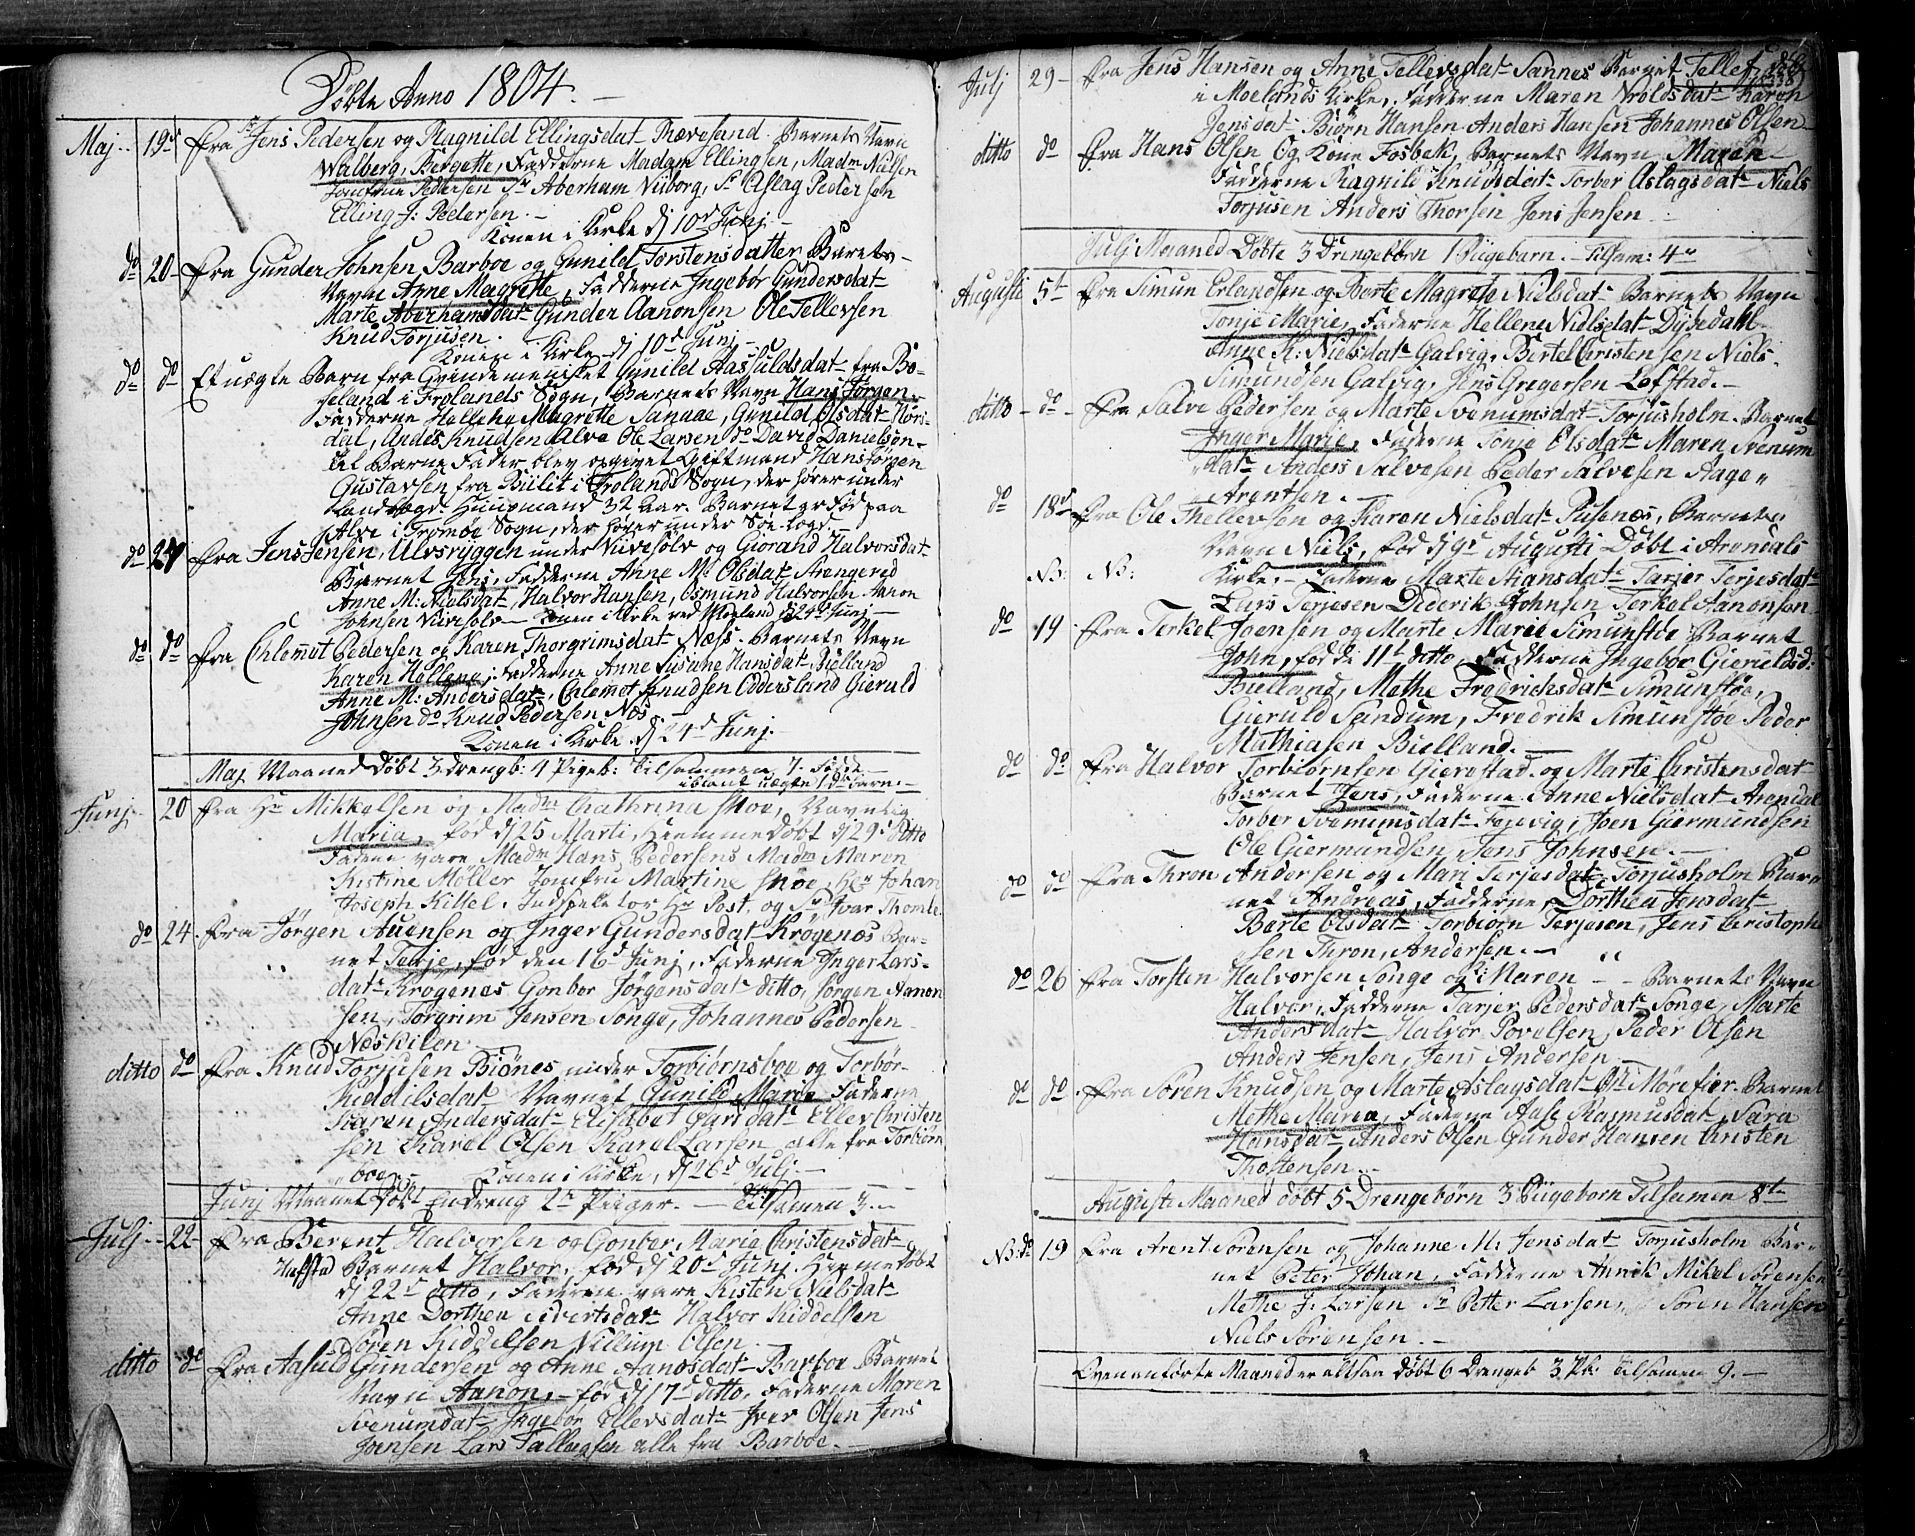 Döbte Anno 1804.
Maj. 19de Fra Sr Jens Pedersen og Ragnild Ellingsdatr Rævesand. Barnets Navn
Walberg, Bergette, Fadderne Madam Ellingsen, Madm Nielsen
Jomfrue Pedersen Sr Aberham Niiborg, Sr Aslag Pedersen
Elling J: Pedersen.
Konen i Kirke dj 10d Junj.
do 20 Fra Gunder Johnsen Barboe og Gunild Torstensdatter Barnets
Navn Anne Magrete, Fadderne Ingebør Gundersdatr
Marte Aberhamsdatr Gunder Aanonsen Ole Tellevsen
Knud Torjusen.
Konen i Kirke dj 10d Junj
do do Et uægte Barn fra Qvindemenisket Gunild Aassuldsdatr fra Bo-
seland i Frolands Sogn, Barnets Navn Hans Jørgen
Fadderne Hellehe Magrette Sannae, Gunild Olsdatr Nørs-
dal, Anders Knudsen Alve Ole Larsen do David Danielsøn
til Barne Fader blev opgivet Giftmand Hans Jørgen
Gustavsen fra Bulit i Froland Sogn, der hører under
Landvægd. Huusmand 32 Aar. Barnet er Fød paa
Alve i Tromøe Sogn, der hører under Søe-logd
do 21 Fra Jens Jensen, Alvsryggen under Vivesølv og Giorand Halvorsdatr
Barnet Jens, Fadderne Anne M: Olsdatr Strengered
Anne M: Nielsdatr, Halvor Hansen, Osmund Halvorsen Anon
Johnsen Vivesølv — Konen i Kirke ved Moeland dj 24d Junj
do do Fra Chlemet Pedersen og Karen Thorgrimsdat Næss. Barnets Navn
Karen Hellene, Fadderne Anne Susane Hansdatr, Bielland
Anne M: Andersdatr, Chlemet Knudsen Oddersland Gieruld
Johnsen do Knud Pedersen Næs
Konen i Kirke dj 24d Junj.
Maj Maaned Døbt 3 drengb: 4 Pigeb: tilsammen 7. Fødde
iblant uægte 1 dr: barn.
Junj. 20 Fra Hr Mikkelsen og Madm Chathrina Smoe, Navnlig
Maria, fød dj 25 Marti, Hiemmedøbt dj 29d ditto
Fadene vare Madm Hans Pedersens Madm Maren
Kistine Møller Jomfru Martine Smöe, Hr Johan
Joseph Kittel. Indspektor Hr Post. og Sr Ivar Thomle
do 24 Fra Jörgen Auensen og Inger Gundersdatr Krögenæs Bar-
net Terje, fød den 16d Junj, Fadderne Inger Lars-
datr Krogenes Gonbor Jörgensdatr ditto, Jørgen Aanon
sen, Torgrim Jensen Songe, Johannes Pedersen
Næskilen
ditto do Fra Knud Torjusen Biönes under Torbiørnsboe og Torbör
Kiddilsdat Navnet Gunild Marie Faderne
Karen Andersdatr Elisabet Larsdatr Ellev Christen
sen Karel Olsen Karel Larsen, alle fra Torbiørn
boe. Konen i Kirke, dj 26d Julj.
Junj Maanet Døbt En dreng 2 Piiger. Tilsamen 3.
Julj 22 Fra Berent Halvorsen og Gonber Marie Christensdatr
Hafstad Barnet Halvor, fød dj 20d Junj Hiemedøbt
dj 22d ditto, Faderne vare Kisten Nielsdatr
Anne Dorthea Sivertsdatr Halvor Kiddelsen
Sören Kiddelsen Villum Olsen
ditto do Fra Aasuld Gundersen og Anne Aanosdatr Barboe Barnet
Navn Aanon, fød dj 17d ditto, Faderne Maren
Svenumdatr Ingebör Ellevsdatr Iver Olsen Jens
Joensen Lars Tallagsen alle fra Barboe.
Julj 29 Fra Jens Hansen og Anne Tellevsdatr Sannes Barnet Tellef
i Moelands Kirke, Fadderne Maren Vroldsdatr Karen
Jensdatr Biørn Hansen Anders Hansen Johannes Olsen
ditto do Fra Hans Olsen Og Kone Fosbek, Barnets Navn Maren
Fadderne Ragnild Knudsdatr Torber Aslagsdatr Niels
Torjusen Anders Thorsen Jens Jensen
Julj Maaned Döbte 3 Drengebörn 1 Piigebarn. Tilsam: 4
Augusti 5t Fra Simun Erlandsen og Barte Magrete Nielsdatr Barnets Navn
Tonje Marie, Faderne Hellene Nielsdatr Dybedahl
Anne K: Nielsdatr Galvig, Bertel Christensen Niels
Simundsen Galvig, Jens Gregersen Løfstad.
ditto do Fra Salve Pedersen og Marte Svenumsdatr Torjusholm. Barnet
Inger Marie, Faderne Tonje Olsdatr Maren Svenum
datr Anders Salvesen Peder Salvesen Aage
Arentsen.
do 18d Fra Ole Thellevsen og Karen Nielsdatr Pusenes, Barnets
Navn Niels, fød dj 9d Augusti Døbt i Arendals
NB: NB: Kirke. Faderne Marte Niansdatr Tarjer Terjesdatr
Lars Terjesen Diderik Johnsen Terkel Aanonsen
do 19 Fra Terkel Joensen og Marte Marie Simunstöe Barnet
John, fød de 11t ditto Fadderne Ingebør Gieruldsd:
Bielland, Methe Fredrichsdatr Simunstøe,
Gieruld Sandum, Fredrik Simunstøe Peder
Mathiasen Bielland.
do do Fra Halvor Torbiörnsen Gierestad og Marte Christensdatr
Barnet Jens, Fadderne Anne Nielsdatr Arendal
Torber Svenumsdatr Tojevig, Joen Giermundsen
Ole Giermundsen, Jens Johnsen.
do do Fra Thron Andersen og Mari Terjesdatr Torjusholm Bar
net Andreas, Fadderne, Dorthea Jensdatr
Barte Olsdatr Torbiörn Terjesen, Jens Christophe
sen Thron, Andersen.
do 26 Fra Torsten Halvorsen Songe og K: Maren — Barnets Navn
Halvor, Fadderne Tarjer Pedersdatr Songe, Marte
Andersdatr Halvor Povelsen, Peder Olsen
Anders Jensen, Jens Andersen
do do Fra Sören Knudsen og Marte Aslagsdatr Mörefiær Barnet
Methe Maria, Faderne Aase Rasmusdatr, Sara
Hansdatr Anders Olsen Gunder Hansen Christen
Thostensen.
Augusti Maaned döbt 5 Drengebörn 3 Piigebørn Tilsamen 8te
NB: do 19 Fra Arent Sörensen og Johanne M: Jensdatr Torjusholm Bar-
net Peter Johan, Fadderne Annik Mikel Sörensen
Methe J: Larsen Sr Petter Larsen, Sören Hansen
Niels Sörensen.
Ovenanförte Maaned er altsaa Döbt 6 Drengeb 3 Pb: Tilsamen 9.